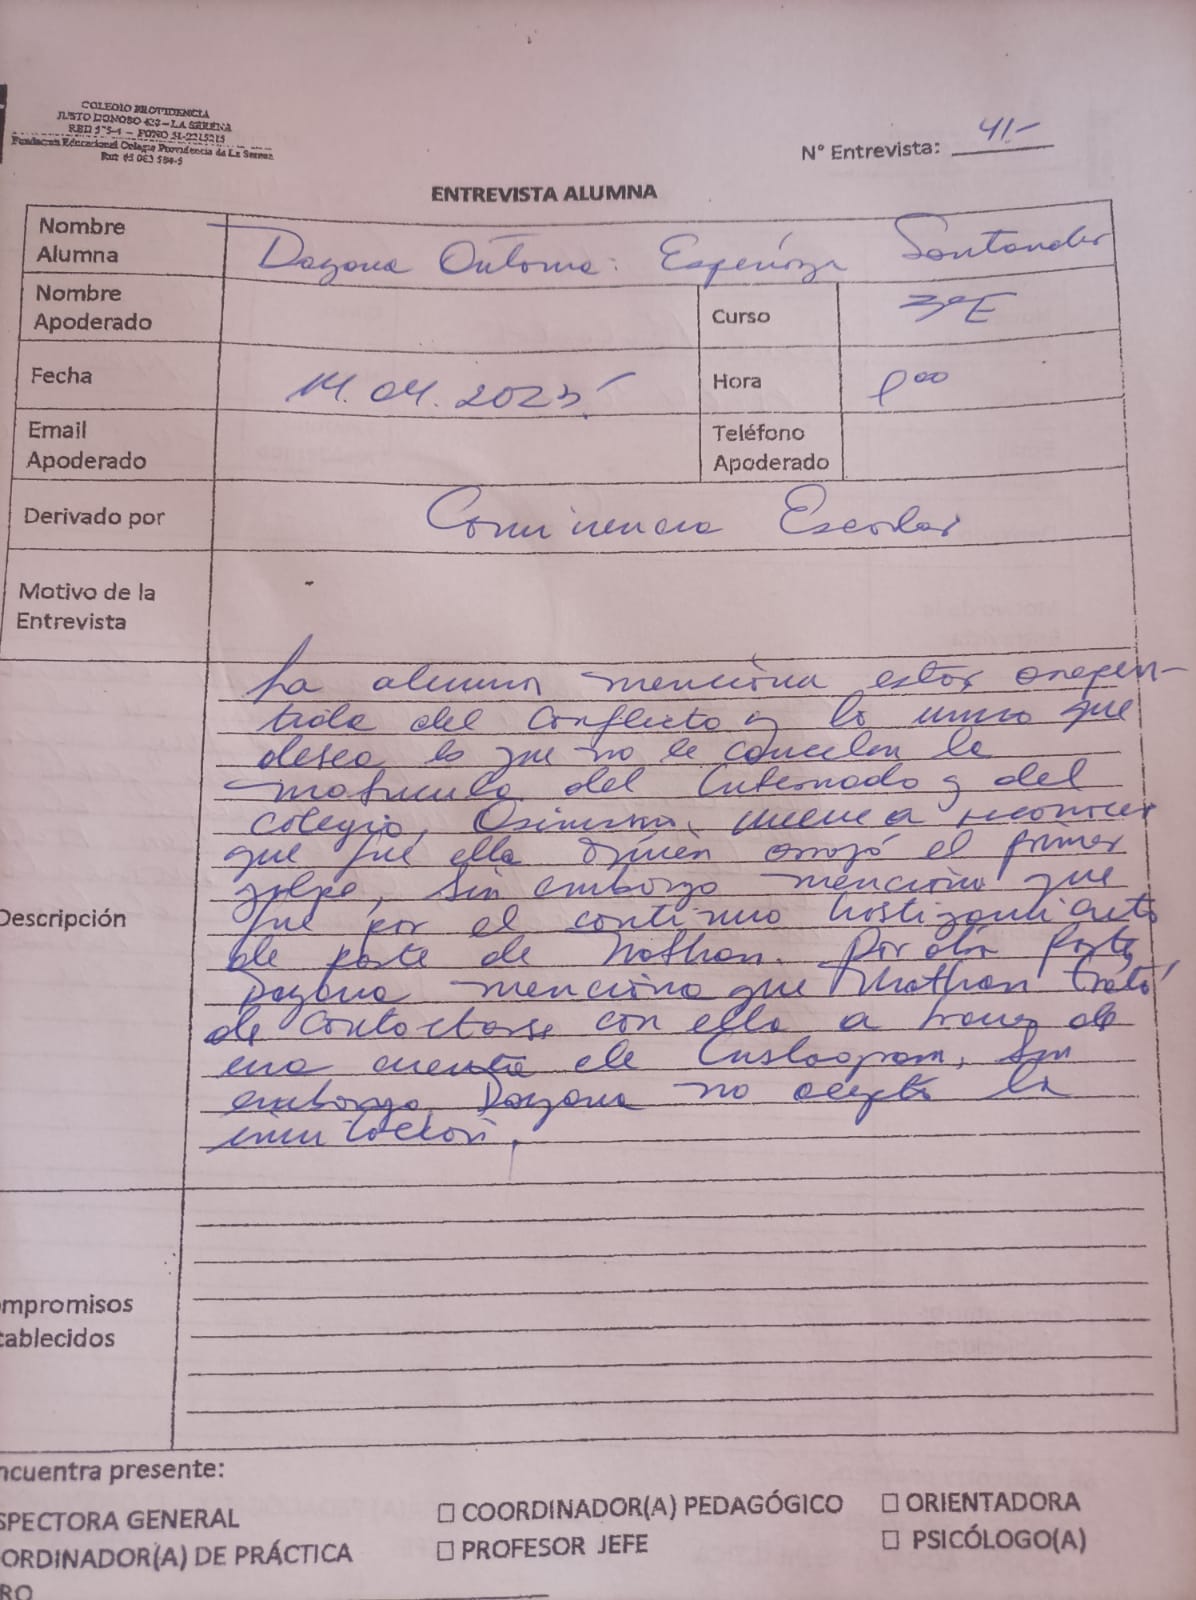 COLEGIO PROVIDENCIA
JUSTO DONOSO 420 – LA SERENA
RBD 575-4 – FONO 51-2215215
Fundacion Educacional Colegio Providencia de La Serena
Rut: 65 063 584-5
N° Entrevista: 41.-
ENTREVISTA ALUMNA
Nombre Alumna Dayana Antonia Espinoza Santander
Nombre Apoderado
Curso 3°E
Fecha 14.04.2023
Hora 8°°
Email Apoderado
Teléfono Apoderado
Derivado por Convivencia Escolar
Motivo de la Entrevista
Descripción
La alumna menciona estar arrepen-
tida del conflicto y lo único que
desea es que no le cancelen la
matricula del Internado y del
colegio, Asimismo, vuelve a reconocer
que fue ella quien arrojó el primer
golpe, sin embargo menciona que
fue por el continuo hostigamiento
de parte de Nathan. Por otra parte,
Dayana menciona que Nathan trató
de contactarse con ella a traves de
una cuenta de Instagram, sin
embargo, Dayana no acepto la
invitación.
ompromisos
tablecidos
ncuentra presente:
SPECTORA GENERAL
☐ COORDINADOR(A) PEDAGÓGICO
☐ ORIENTADORA
ORDINADOR(A) DE PRÁCTICA
☐ PROFESOR JEFE
☐ PSICÓLOGO(A)
RO